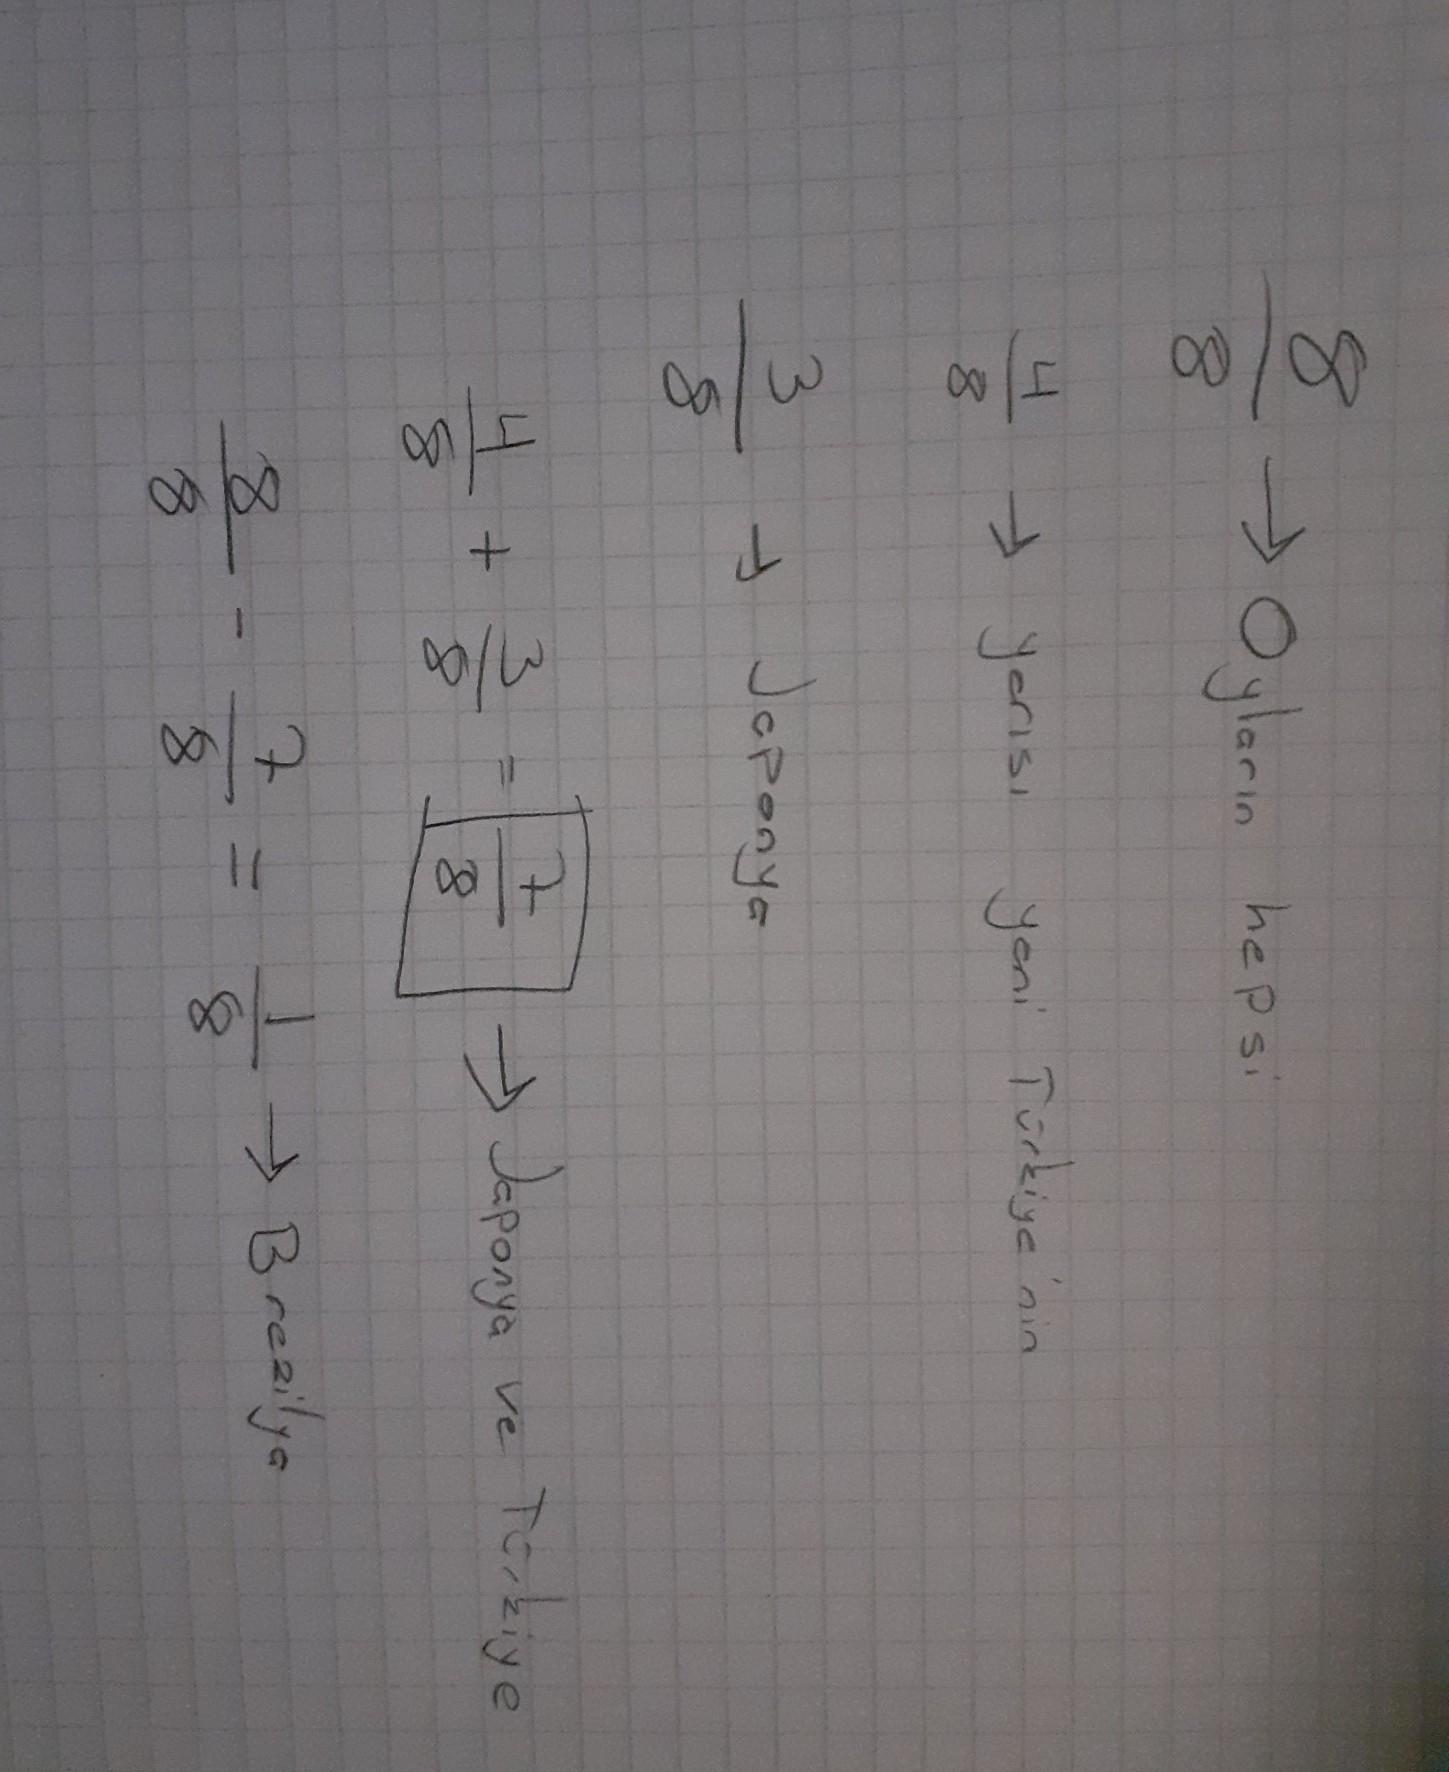 8/8 → Oyların hepsi
4/8 → yarısı yani Türkiye'nin
3/8 → Japonya
4/8 + 3/8 = 7/8 → Japonya ve Türkiye
8/8 - 7/8 = 1/8 → Brezilya